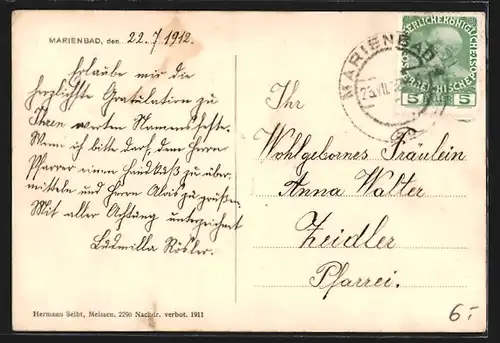 MARIENBAD, den 22.7.1912.
Erlaube mir die
herzlichste Gratulation zu
Ihren werten Namensfeste.
Wenn ich bitte darf, dem Herrn
Pfarrer einen Handkuß zu über
mitteln und Herrn Alois zu grüßen.
Mit aller Achtung unterzeichnet
Ludmilla Rösler.
Hermann Seibt, Meissen, 2296 Nachdr. verbot. 1911
MARIENBAD
5 5
Ihr
Wohlgebornes Fräulein
Anna Walter
Zeidler
Pfarrei.
6.-